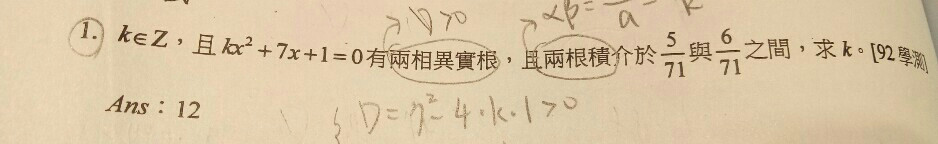 D>0 αβ=  /a = /k
1. k∈Z，且 kx²+7x+1=0有兩相異實根，且兩根積介於 5/71 與 6/71 之間，求 k。[92學測]
Ans：12
{ D=7²-4·k·1>0